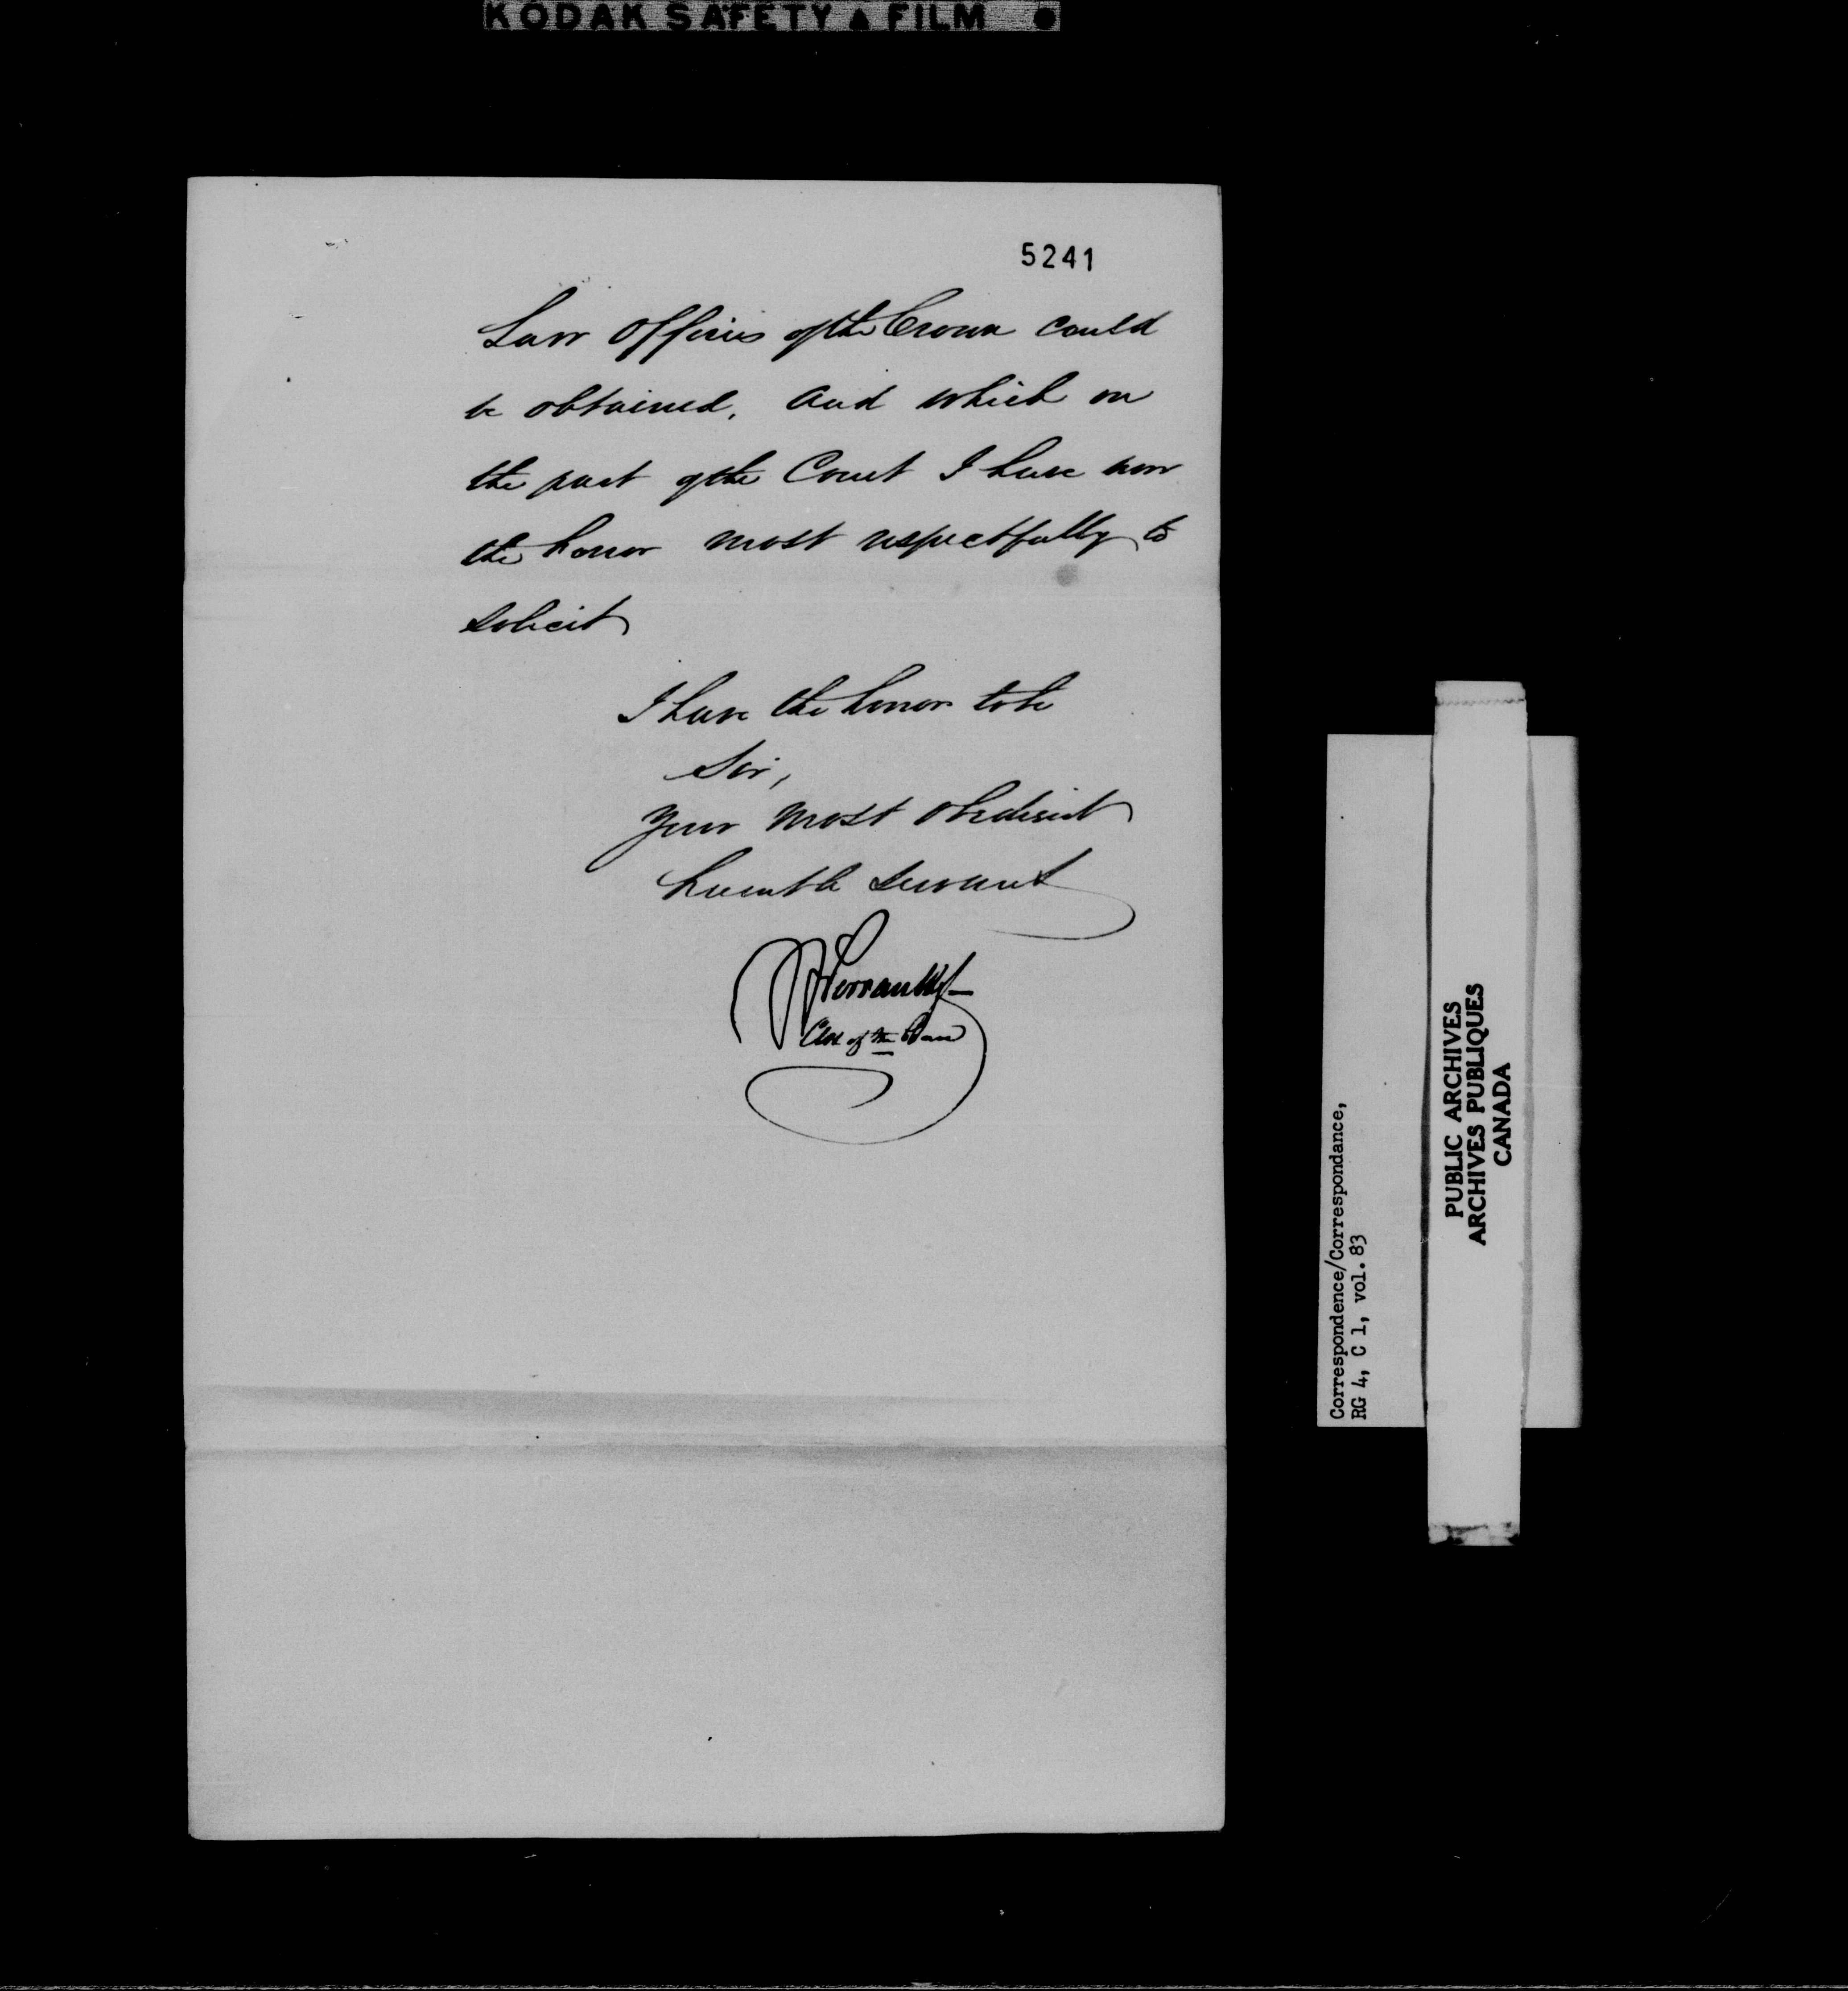 KODAK SAFETY ▲ FILM ●
5241
Law Officers of the Crown could
be obtained, and which on
the part of the Court I have now
the honor most respectfully to
solicit
I have the honor to be
Sir,
Your most obedient
humble servant
Perrault
Clk of the Peace
Correspondence/Correspondance,
RG 4, C 1, vol. 83
PUBLIC ARCHIVES
ARCHIVES PUBLIQUES
CANADA